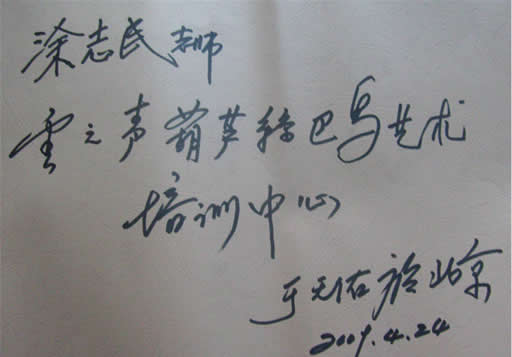 涂志民老师
雲之声葫芦丝巴乌艺术
培训中心
于天佑於北京
2009.4.24